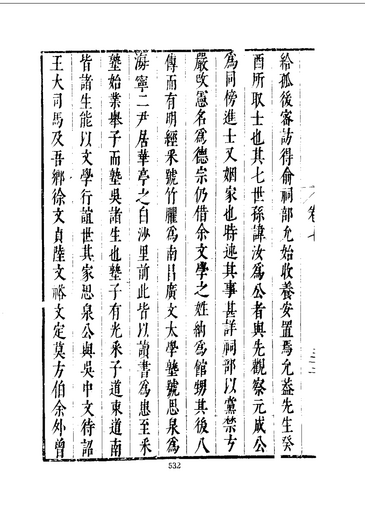 給孤後審訪得俞祠部允始收養安置焉允益先生癸
酉所取士也其七世孫諱汝為公者與先觀察元咸公
為同傍進士又姻家也時述其事甚詳祠部以黨禁方
嚴改憲名為德宗仍借余文學之姓納為館甥其後八
傳而有明經釆號竹臞為南昌廣文太學塾號思泉為
海寧二尹居華亭之白沙里前此皆以讀書為恵至釆
塾始業舉子而塾吳諸生也塾子有光釆子道東道南
皆諸生能以文學行誼世其家思泉公與吳中文待詔
王大司馬及吾鄉徐文貞陸文裕文定莫方伯余外曾
卷七
532